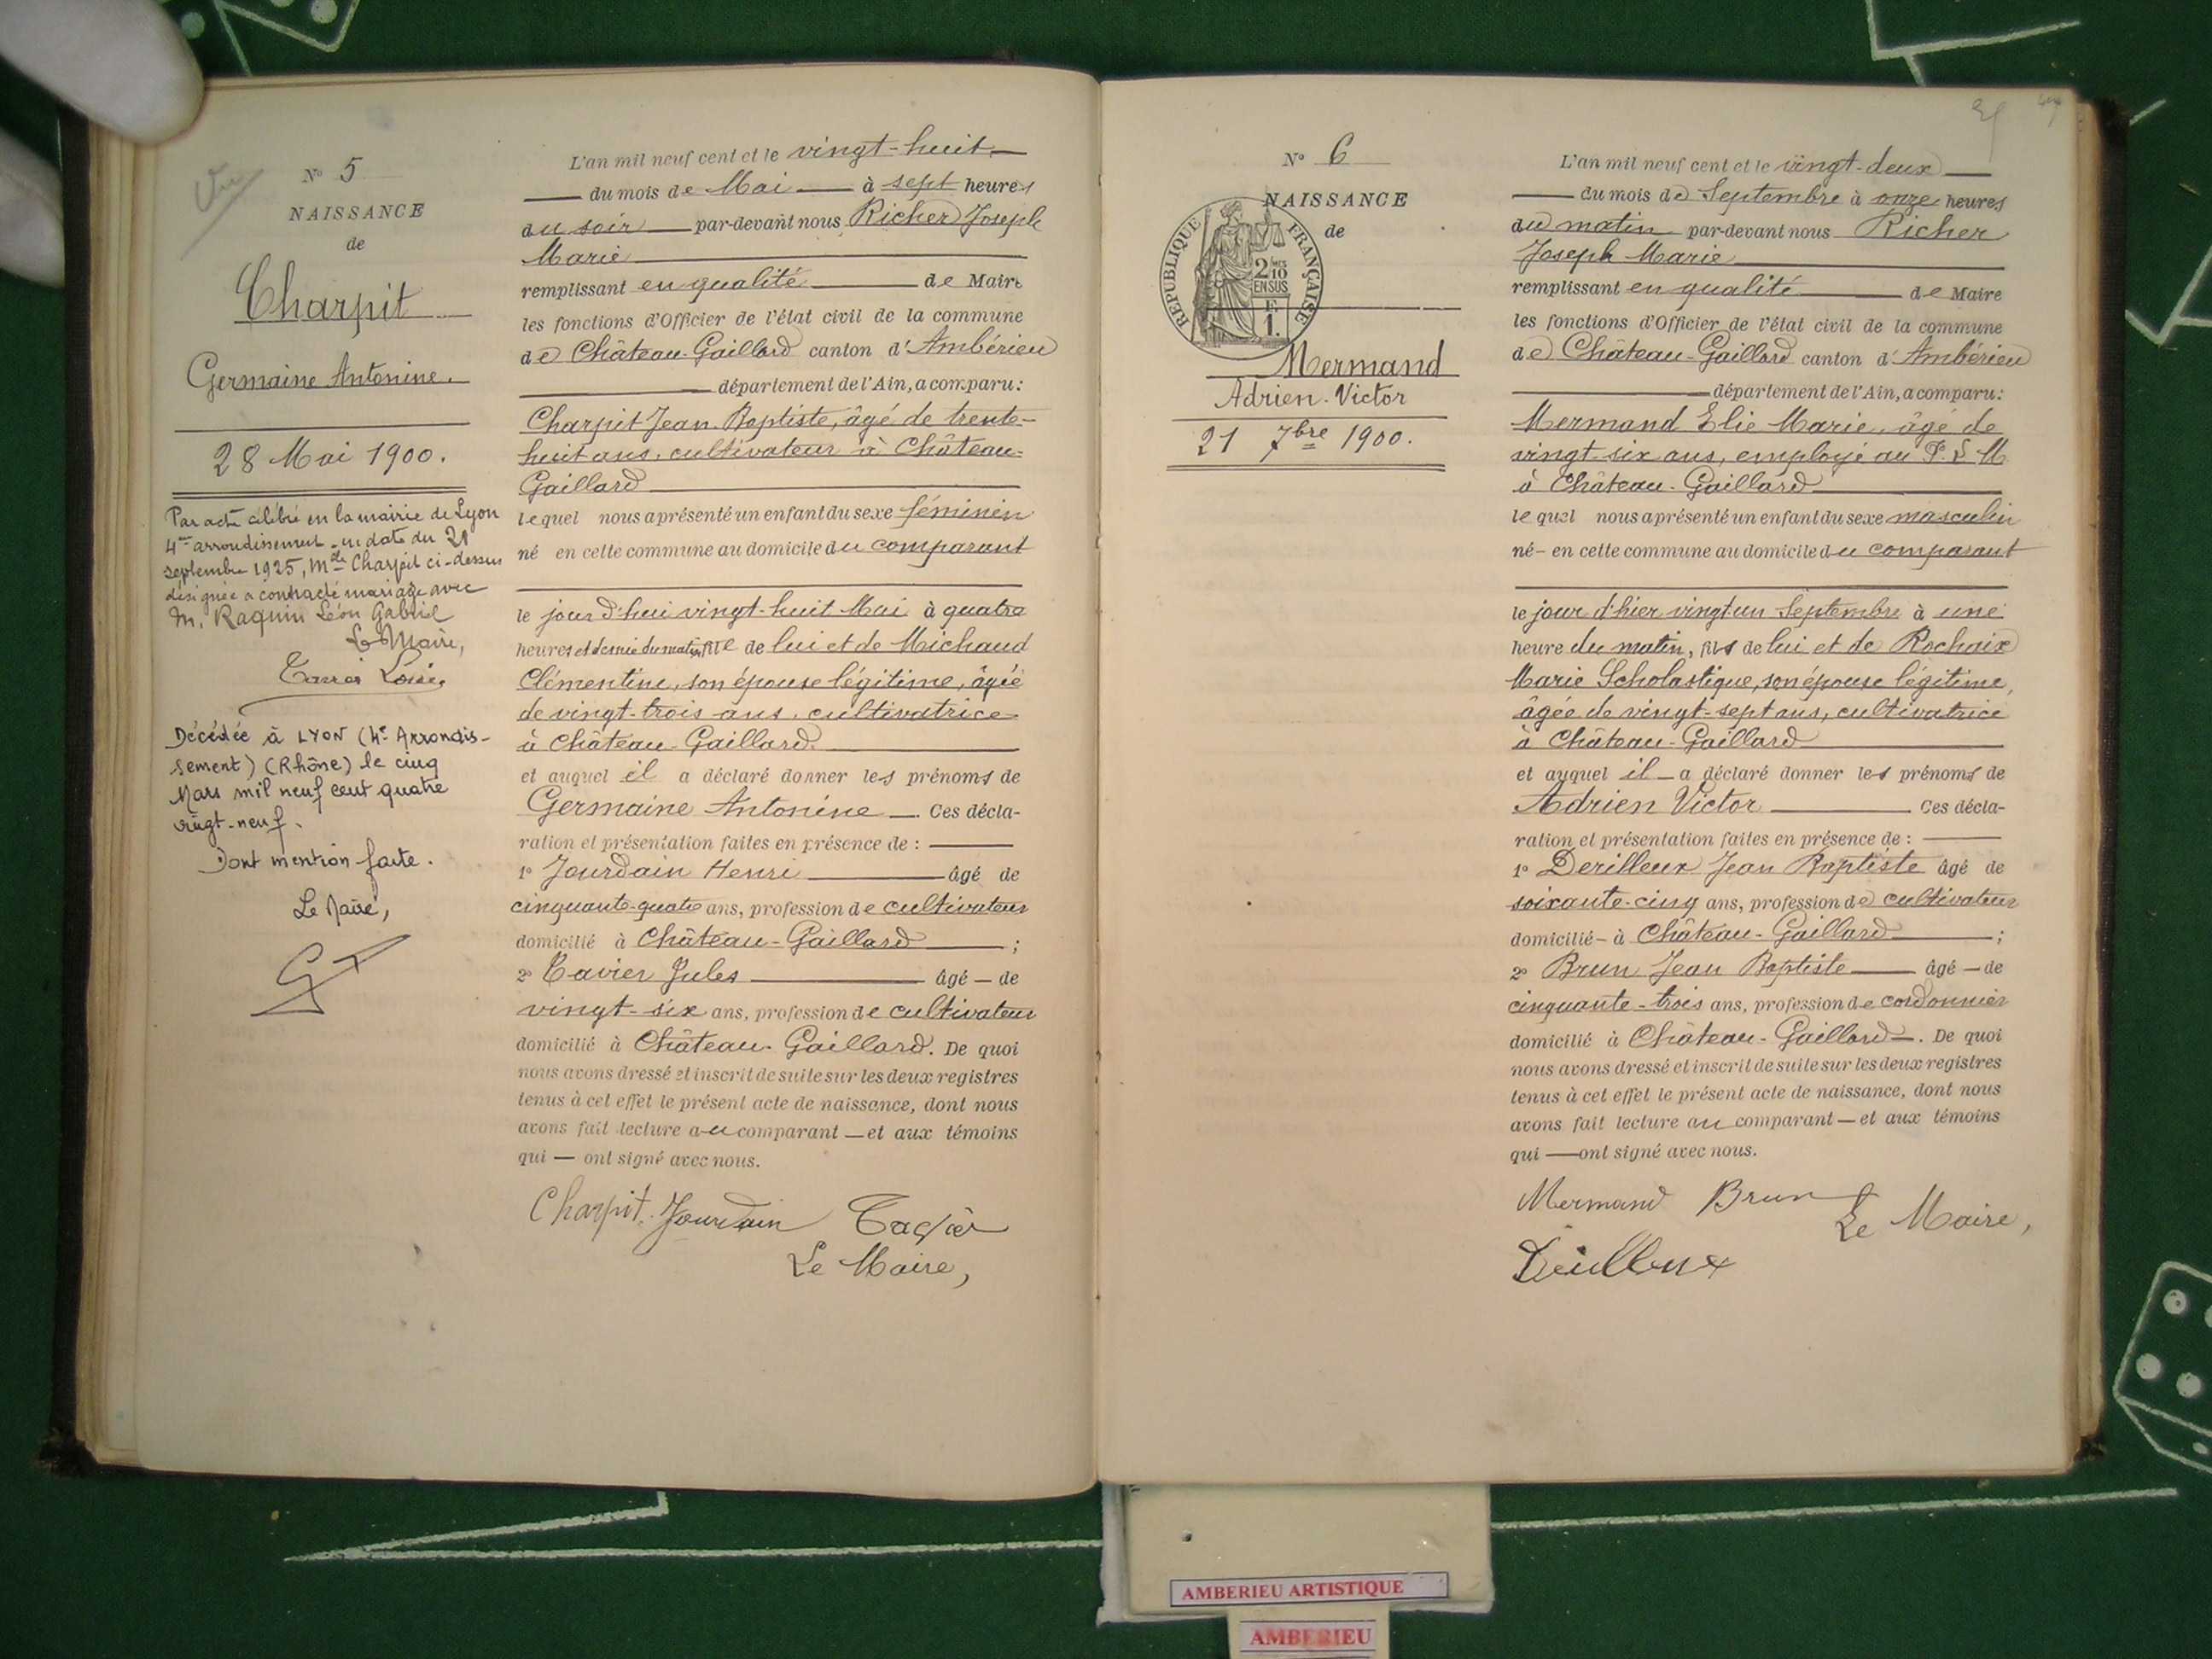 Vu
N° 5
NAISSANCE
de
Charpit
Germaine Antonine.
28 Mai 1900.
Par acte célébré en la mairie de Lyon
4me arrondissement en date du 21
septembre 1925, Mlle Charpit ci-dessus
désignée a contracté mariage avec
M. Raquin Léon Gabriel
Le Maire,
Décédée à LYON (4e Arrondis-
sement) (Rhône) le cinq
Mars mil neuf cent quatre
vingt-neuf.
Dont mention faite.
Le Maire,
L'an mil neuf cent et le vingt-huit
du mois de Mai à sept heures
du soir par-devant nous Richer Joseph
Marie
remplissant en qualité de Maire
les fonctions d'Officier de l'état civil de la commune
de Château-Gaillard canton d'Ambérieu
département de l'Ain, a comparu:
Charpit Jean-Baptiste, âgé de trente-
huit ans, cultivateur à Château-
Gaillard
lequel nous a présenté un enfant du sexe féminin
né en cette commune au domicile du comparant
le jour d'hui vingt-huit Mai à quatre
heures et demie du matin, fille de lui et de Michaud
Clémentine, son épouse légitime, âgée
de vingt-trois ans, cultivatrice
à Château-Gaillard.
et auquel il a déclaré donner les prénoms de
Germaine Antonine. Ces décla-
ration et présentation faites en présence de :
1° Jourdain Henri âgé de
cinquante-quatre ans, profession de cultivateur
domicilié à Château-Gaillard ;
2° Tavier Jules âgé de
vingt-six ans, profession de cultivateur
domicilié à Château-Gaillard. De quoi
nous avons dressé et inscrit de suite sur les deux registres
tenus à cet effet le présent acte de naissance, dont nous
avons fait lecture au comparant et aux témoins
qui ont signé avec nous.
Charpit Jourdain Tavier
Le Maire,
N° 6
NAISSANCE
de
RÉPUBLIQUE FRANÇAISE
2/10
EN SUS
E.
1.
Mermand
Adrien-Victor
21 7bre 1900.
L'an mil neuf cent et le vingt-deux
du mois de Septembre à onze heures
du matin par-devant nous Richer
Joseph Marie
remplissant en qualité de Maire
les fonctions d'Officier de l'état civil de la commune
de Château-Gaillard canton d'Ambérieu
département de l'Ain, a comparu:
Mermand Elie Marie, âgé de
vingt-six ans, employé au P. L. M
à Château-Gaillard
lequel nous a présenté un enfant du sexe masculin
né en cette commune au domicile du comparant
le jour d'hier vingt un Septembre à une
heure du matin, fils de lui et de Rochaix
Marie Scholastique, son épouse légitime,
âgée de vingt-sept ans, cultivatrice
à Château-Gaillard
et auquel il a déclaré donner les prénoms de
Adrien Victor Ces décla-
ration et présentation faites en présence de :
1° Derilleux Jean Baptiste âgé de
soixante-cinq ans, profession de cultivateur
domicilié à Château-Gaillard ;
2° Brun Jean Baptiste âgé de
cinquante-trois ans, profession de cordonnier
domicilié à Château-Gaillard. De quoi
nous avons dressé et inscrit de suite sur les deux registres
tenus à cet effet le présent acte de naissance, dont nous
avons fait lecture au comparant et aux témoins
qui ont signé avec nous.
Mermand Brun
Le Maire,
Derilleux
AMBERIEU ARTISTIQUE
AMBERIEU